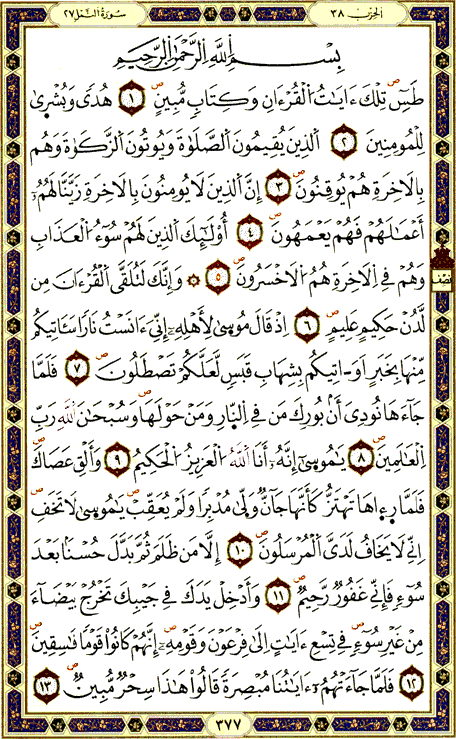 الحِزْب ٣٨
سُورَةُ النَّمْل ٢٧
بِسْمِ اللَّهِ الرَّحْمَٰنِ الرَّحِيمِ
طَسِٓ تِلْكَ ءَايَٰتُ الْقُرْءَانِ وَكِتَابٖ مُّبِينٍ ١ هُدىٗ وَبُشْر۪ىٰ
لِلْمُومِنِينَ ٢ اَ۬لذِينَ يُقِيمُونَ اَ۬لصَّلَوٰةَ وَيُوتُونَ اَ۬لزَّكَوٰةَ وَهُم
بِالَاخِرَةِ هُمْ يُوقِنُونَ ٣ إِنَّ اَ۬لذِينَ لَا يُومِنُونَ بِالَاخِرَةِ زَيَّنَّا لَهُمُۥٓ
أَعْمَٰلَهُمْ فَهُمْ يَعْمَهُونَ ٤ أُوْلَٰٓئِكَ اَ۬لذِينَ لَهُمْ سُوٓءُ اُ۬لْعَذَابِ
وَهُمْ فِے اِ۬لَاخِرَةِ هُمُ اُ۬لَاخْسَرُونَ ٥ ۞ وَإِنَّكَ لَتُلَقَّى اَ۬لْقُرْءَانَ مِن
نصف
لَّدُنْ حَكِيمٍ عَلِيمٍ ٦ اِذْ قَالَ مُوس۪ىٰ لِأَهْلِهِۦٓ إِنِّيَ ءَانَسْتُ نَاراٗ سَـَٔاتِيكُم
مِّنْهَا بِخَبَرٍ اَوَ اٰتِيكُم بِشِهَابِ قَبَسٖ لَّعَلَّكُمْ تَصْطَلُونَ ٧ فَلَمَّا
جَآءَهَا نُودِيَ أَنۢ بُورِكَ مَن فِے اِ۬لنّ۪ارِ وَمَنْ حَوْلَهَا وَسُبْحَٰنَ اَ۬للَّهِ رَبِّ
اِ۬لْعَٰلَمِينَ ٨ يَٰمُوس۪ىٰٓ إِنَّهُۥٓ أَنَا اَ۬للَّهُ اُ۬لْعَزِيزُ اُ۬لْحَكِيمُ ٩ وَأَلْقِ عَصَاكَ
فَلَمَّا ر۪ء۪اهَا تَهْتَزُّ كَأَنَّهَا جَآنّٞ وَلّ۪ىٰ مُدْبِراٗ وَلَمْ يُعَقِّبْ يَٰمُوس۪ىٰ لَا تَخَفِ
اِنِّے لَا يَخَافُ لَدَيَّ اَ۬لْمُرْسَلُونَ ١٠ إِلَّا مَن ظَلَمَ ثُمَّ بَدَّلَ حُسْناَۢ بَعْدَ
سُوٓءٖ فَإِنِّے غَفُورٞ رَّحِيمٞ ١١ وَأَدْخِلْ يَدَكَ فِے جَيْبِكَ تَخْرُجْ بَيْضَآءَ
مِنْ غَيْرِ سُوٓءٖ فِے تِسْعِ ءَايَٰتٍ اِلَىٰ فِرْعَوْنَ وَقَوْمِهِۦٓ إِنَّهُمْ كَانُواْ قَوْماٗ فَٰسِقِينَ
١٢ فَلَمَّا جَآءَتْهُمُۥٓ ءَايَٰتُنَا مُبْصِرَةٗ قَالُواْ هَٰذَا سِحْرٞ مُّبِينٞ ١٣
٣٧٧